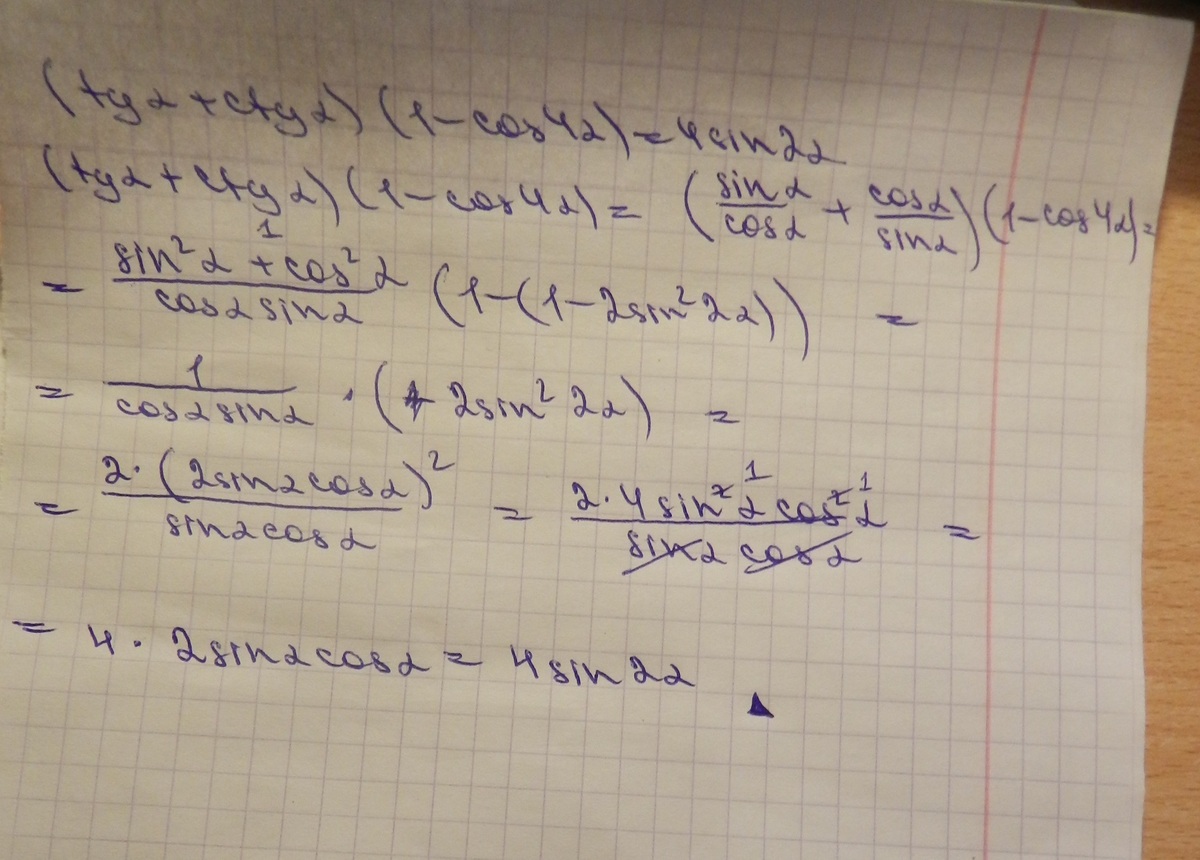 (tgα + ctgα)(1 - cos4α) = 4sin2α
(tgα + ctgα)(1 - cos4α) = (sinα/cosα + cosα/sinα)(1 - cos4α) =
= (sin²α + cos²α)/(cosα sinα) (1 - (1 - 2sin²2α)) =
= 1/(cosα sinα) · (2sin²2α) =
= 2·(2sinαcosα)²/(sinαcosα) = 2·4sin²α cos²α/(sinα cosα) =
= 4 · 2sinαcosα = 4sin2α